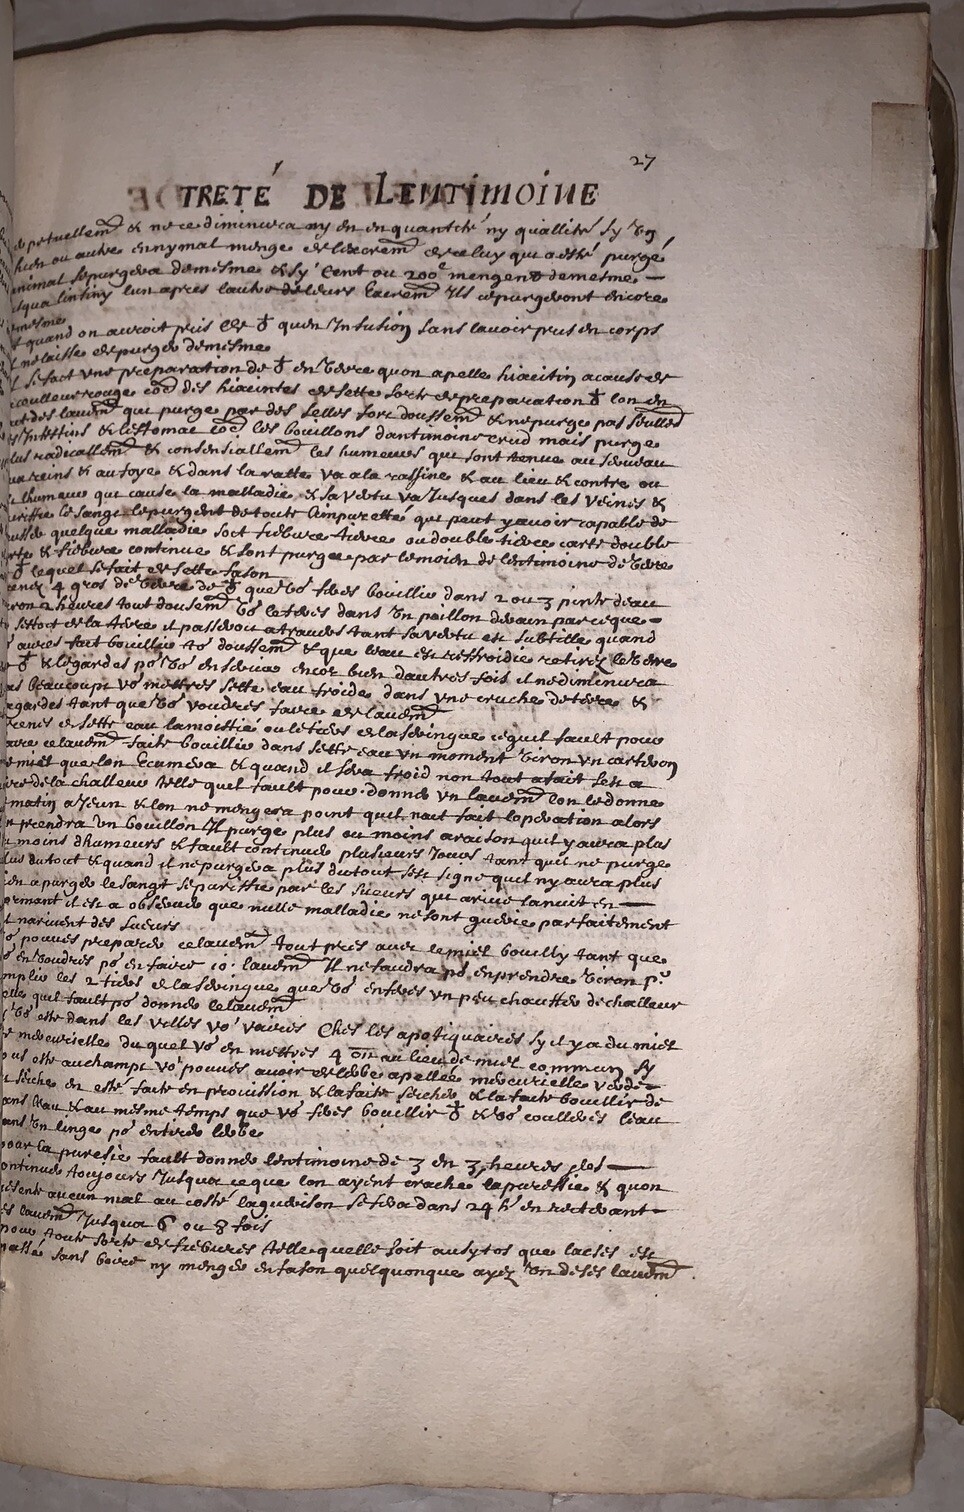 27
TRETÉ DE LENTIMOINE
petuellemt & ne ce diminuera ny en en quantité ny quallité sy un
chien ou autre ennymal menge de lexcremt de celuy qui a esté purgé
nimal sepurgera demesme & sy cent ou 200e mengent demesme
lun apres lautre de leurs Excremt Ils cepurgeront encore
demesme
quand on auroit pris de ♁ quen Infusion sans lavoir prus en corps
nelaisse de purger demesme
se fact une preparation de ♁ en verre quon apelle hiacitin acause de
coulleur rouge come des hiacintes de sette sorte de preparation ♁ lon en
des lavemt qui purge par des selles fort doussemt & ne purge pas seullemt
Intestins & lestomac come les bouillons dantimoine crud mais purge
radicallemt & consensiallemt les humeurs qui sont tenue au serveau
reins & au foye & dans la ratte va ala rassine & au lieu & contre ou
lhumeur qui cause la malladie & sa vertu va Jusques dans les veines &
le sang lepurgent de toute Impureté qui peut y avoir capable de
quelque malladie soit fiebvre tierce ou double tierce carte double
& fiebvre continue & sont purgee par lemoien de lentimoine de verre
♁ lequel se fait de sette fason
4 gros de verre de ♁ que vo feres bouillir dans 2 ou 3 pinte deau
2 heures tout dousemt vo le feres dans un poillon derain par ceque
settoit de la terre il passeroit atravers tant sa vertu est subtille quand
aures fait bouillir to doussemt & que leau est reffroidie retirez le verre
♁ & le gardes po vo en servir encor bien dautres fois il ne diminura
beaucoup vo mettres sette eau froide dans une cruche de terre &
gardes tant que vo voudres faire de lavemt
de sette eau la moittié ou le tiers de la seringue ce quil fault pour
ce lavemt faite bouillir dans sette eau un moment viron un carteron
miel que lon Ecumera & quand il sera froid non tout afait sest a
de la challeur telle quel fault pour donner un lavemt lon le donne
matin a Jeun & lon ne mengera point quil nait fait loperation alors
prendra un bouillon Il purge plus ou moins araison quil y aura plus
moins dhumeurs & fault continuer plusieurs Jours tant quil ne purge
plus du tout & quand il ne purgera plus dutout sest signe quil ny aura plus
a purger le sangt se puriffie par les sueurs qui arive lanuit en
dormant il est a observer que nulle malladie ne sont guerie parfaitement
narivent des sueurs
pouves preparer ce lavemt tout pres avec le miel bouilly tant que
en voudres po en faire 10 lavemt Il ne faudra po en prendre viron pr
emplir les 2 tiers de la seringue que vo enferes un peu chauffer de challeur
quil fault po donner le lavemt
vo este dans les villes vo vaires Ches les apotiquaires sy il y a du miel
mercurielle du quel vo en mettres 4 on au lieu de miel commun sy
este auchamps vo pouves avoir de lerbe apellée mercurielle verde
seiche en esté faite en provission & la faite seicher & la faite bouillir de
dans leau & au mesme temps que vo feres bouillir ♁ & vo coulleres leau
dans un linge po en tirer lerbe
pour la puresie fault donner lentimoine de 3 en 3 heures & les
continuer toujours Jusqua ce que lon ayent crache la puressie & quon
sente aucun mal au costé la guerison se fera dans 24 h en recevant
lavemt Jusqua 6 ou 8 fois
pour toute sorte de fiebvres telle quelle soit ausytos que lacses est
passé sans boire ny menger enfason quelquonque ayez un de ses lavemt